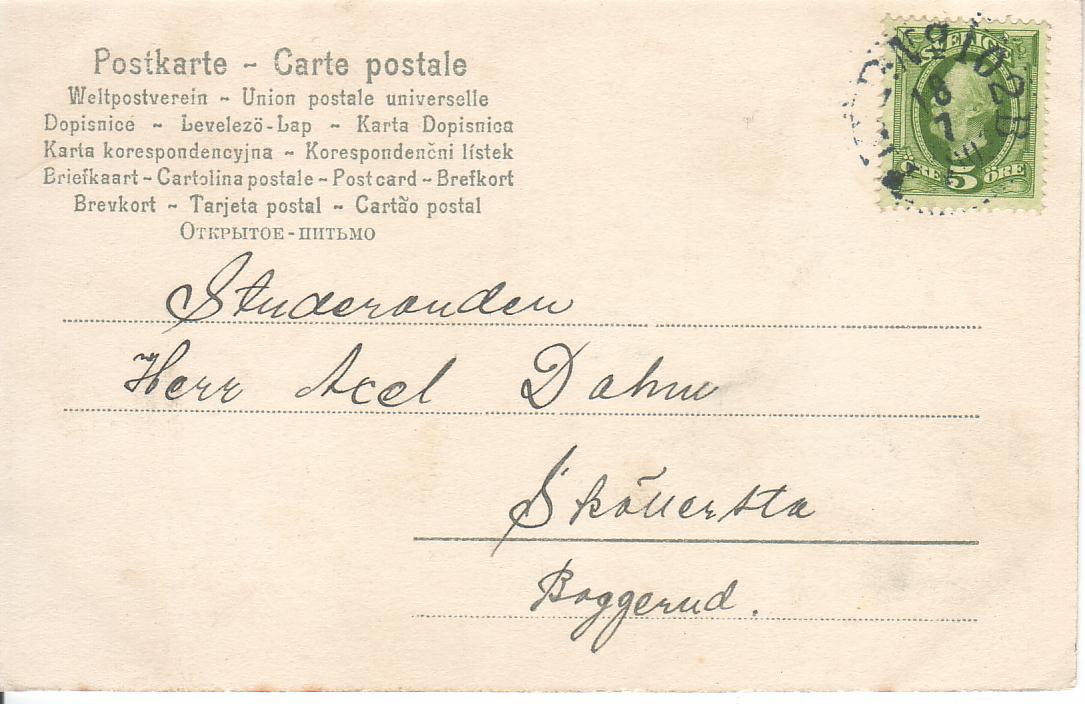 Postkarte - Carte postale
Weltpostverein - Union postale universelle
Dopisnice - Levelezö-Lap - Karta Dopisnica
Karta korespondencyjna - Korespondenčni lístek
Briefkaart - Cartolina postale - Post card - Brefkort
Brevkort - Tarjeta postal - Cartão postal
Открытое-питьмо
SVERIGE
ÖRE 5 ÖRE
Studeranden
Herr Axel Dahm
Sköllersta
Boggerud.